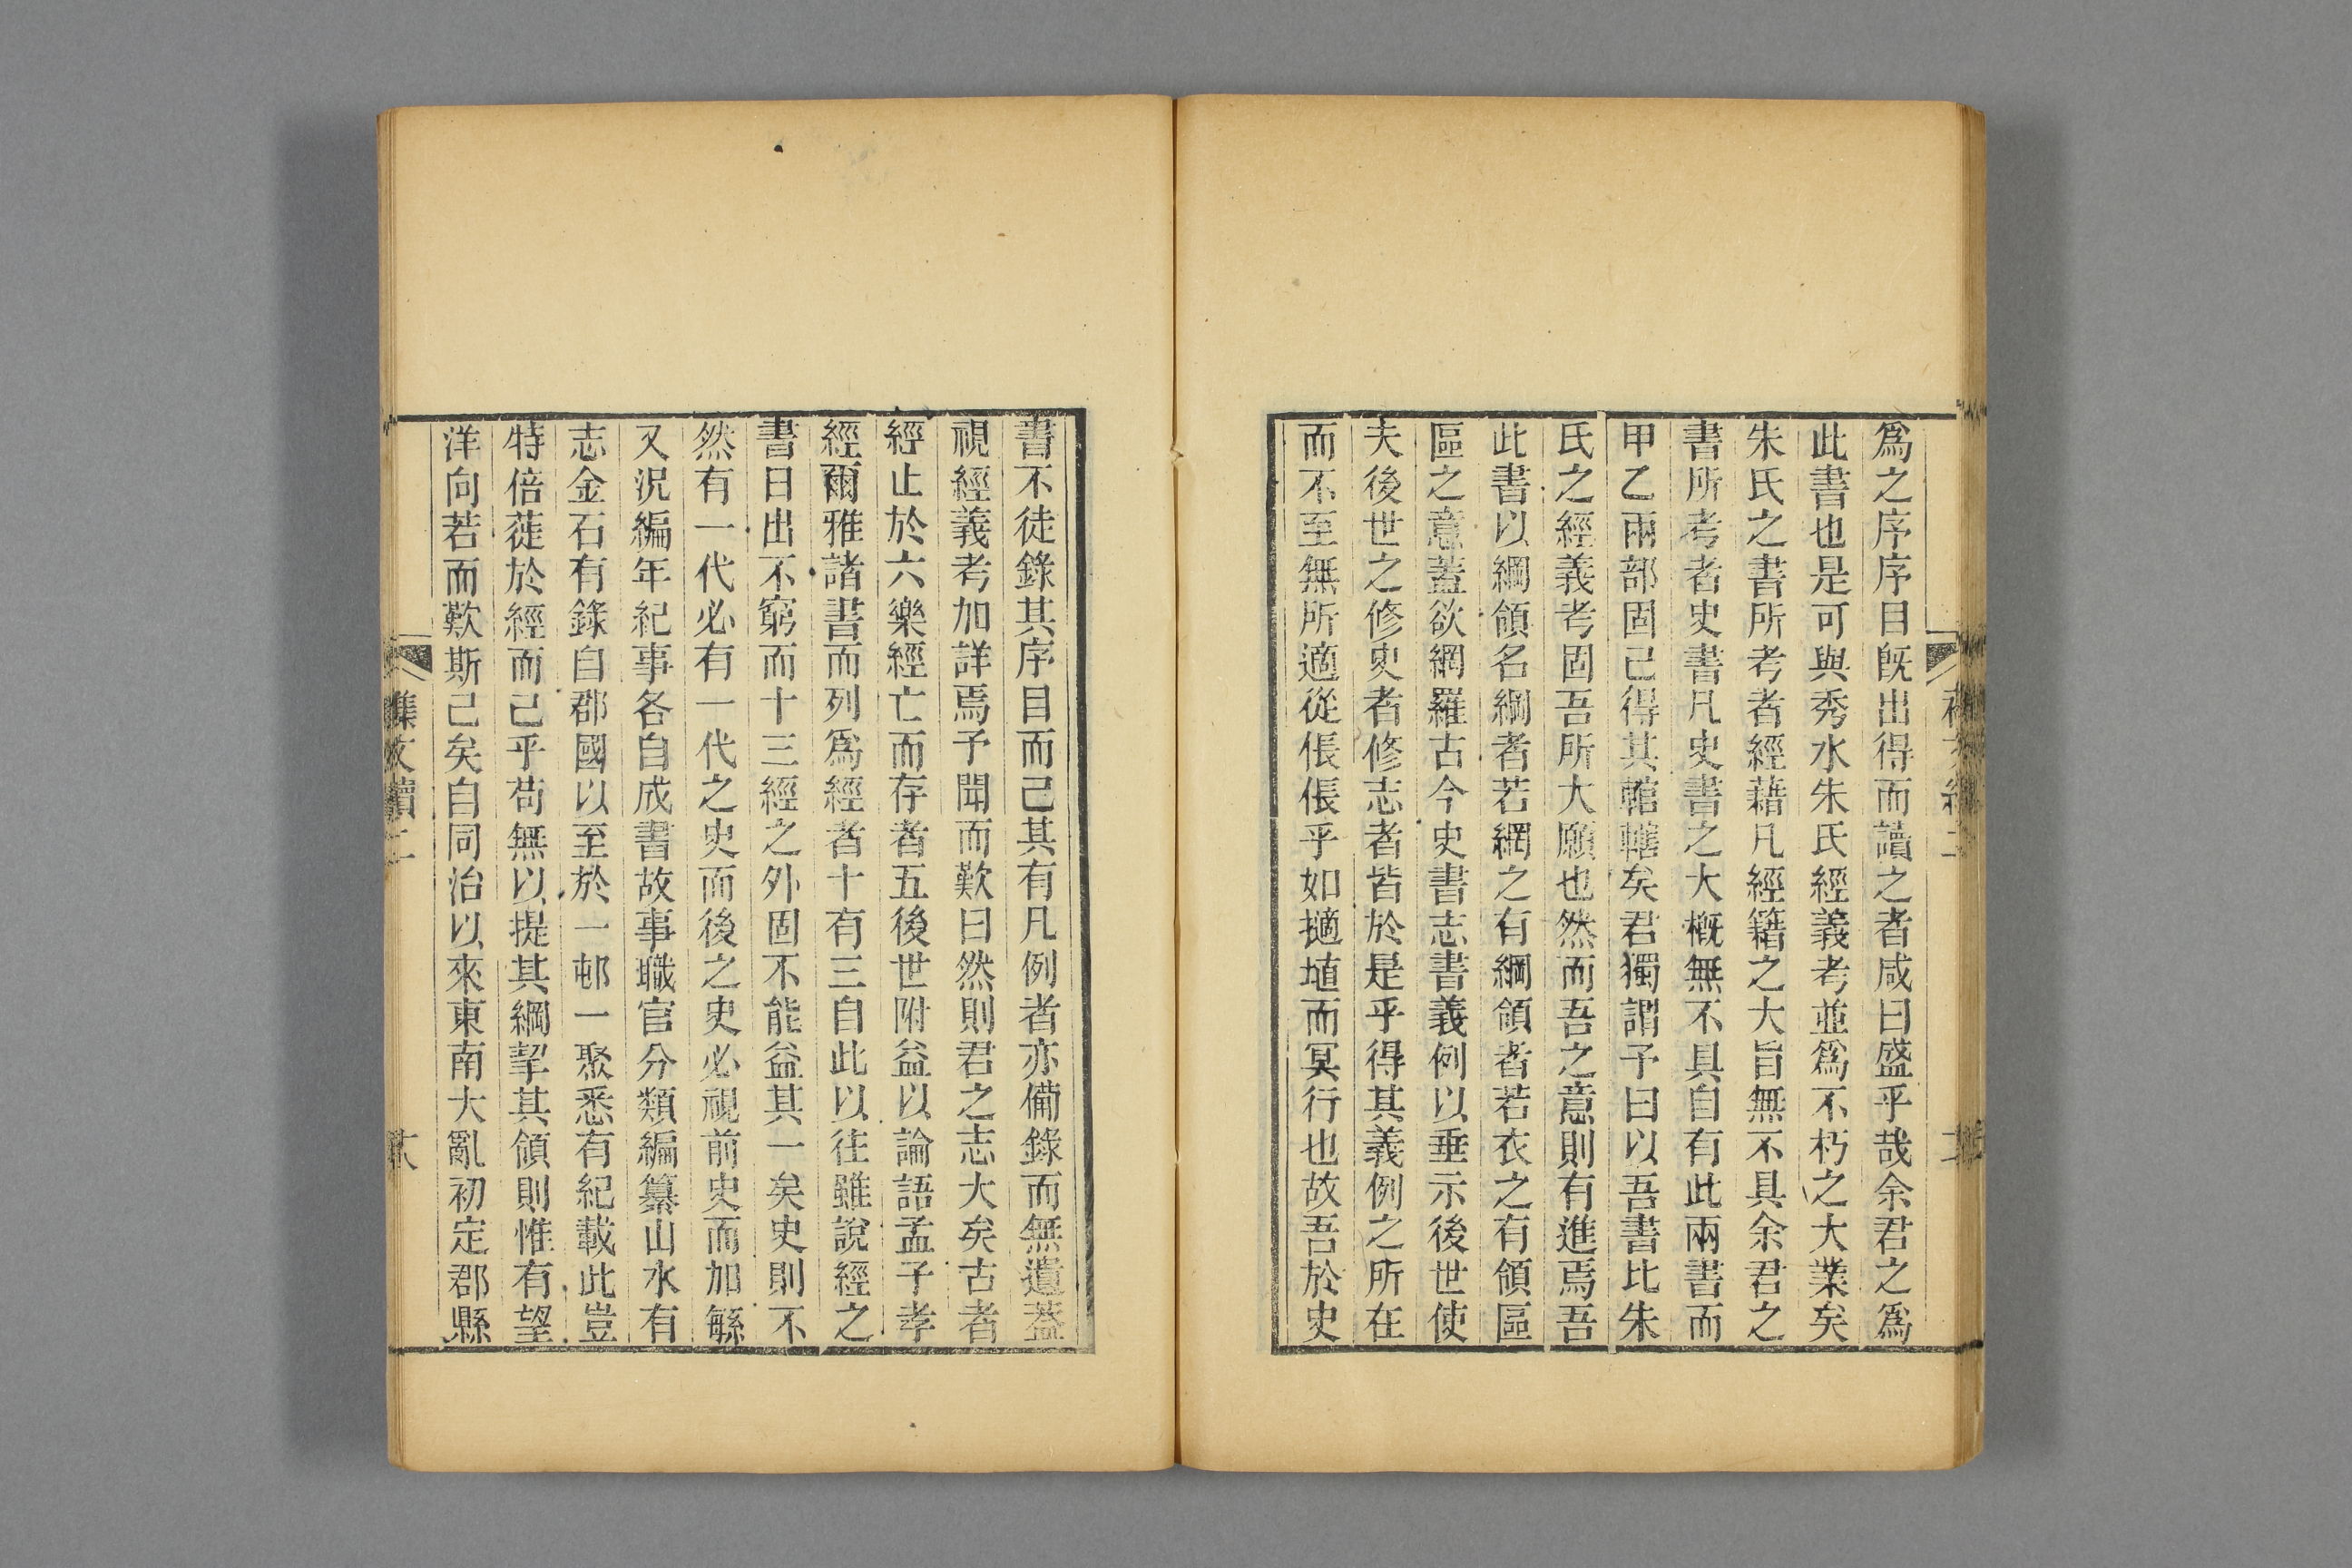 爲之序序目旣出得而讀之者咸曰盛乎哉余君之爲
此書也是可與秀水朱氏經義考並爲不朽之大業矣
朱氏之書所考者經藉凡經籍之大旨無不具余君之
書所考者史書凡史書之大槪無不具自有此兩書而
甲乙兩部固己得其輨轄矣君獨謂予曰以吾書比朱
氏之經義考固吾所大願也然而吾之意則有進焉吾
此書以綱領名綱者若網之有綱領者若衣之有領區
區之意蓋欲網羅古今史書志書義例以垂示後世使
夫後世之修史者修志者皆於是乎得其義例之所在
而不至無所適從倀倀乎如擿埴而冥行也故吾於史
書不徒錄其序目而己其有凡例者亦備錄而無遺葢
視經義考加詳焉予聞而歎曰然則君之志大矣古者
經止於六樂經亡而存者五後世附益以論語孟子孝
經爾雅諸書而列爲經者十有三自此以往雖說經之
書日出不窮而十三經之外固不能益其一矣史則不
然有一代必有一代之史而後之史必視前史而加緐
又況編年紀事各自成書故事職官分類編纂山水有
志金石有錄自郡國以至於一邨一聚悉有紀載此豈
特倍蓰於經而己乎苟無以提其綱挈其領則惟有望
洋向若而歎斯己矣自同治以來東南大亂初定郡縣
集文續二